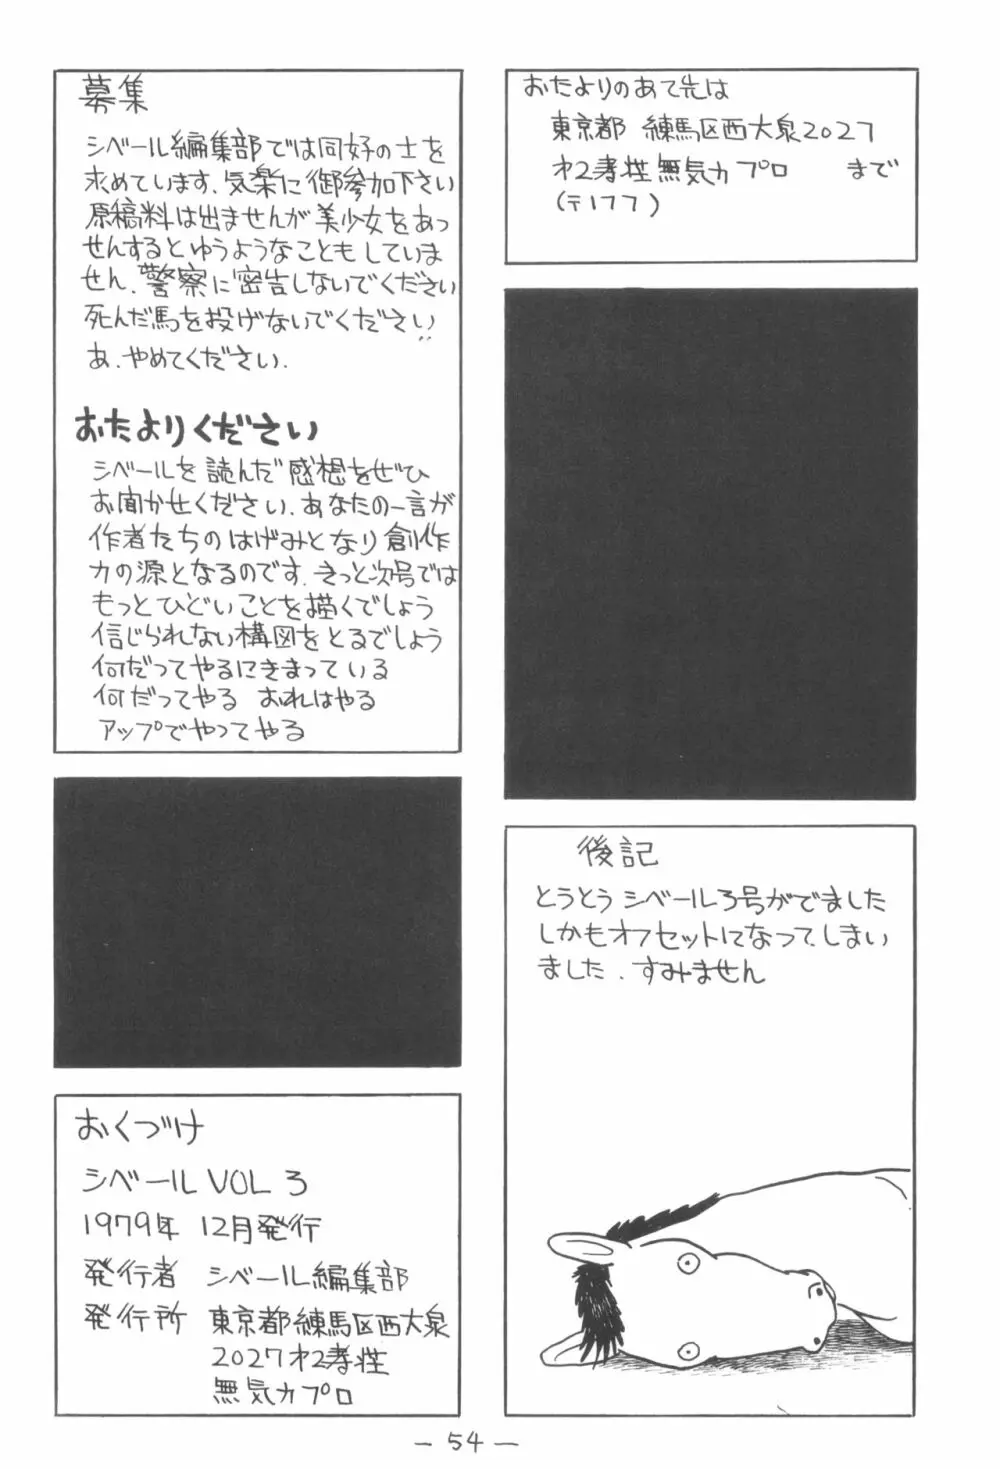 募集
シベール編集部では同好の士を
求めています、気楽に御参加下さい
原稿料は出ませんが美少女をあっ
せんするとゆうようなこともしていま
せん、警察に密告しないでください
死んだ馬を投げないでください
あ、やめてください.
おたよりください
シベールを読んだ感想をぜひ
お聞かせください、あなたの一言が
作者たちのはげみとなり創作
力の源となるのです、きっと次号では
もっとひどいことを描くでしょう
信じられない構図をとるでしょう
何だってやるにきまっている
何だってやる おれはやる
アップでやってやる
おくづけ
シベール VOL 3
1979年 12月発行
発行者 シベール編集部
発行所 東京都練馬区西大泉
2027 才2孝性
無気力プロ
おたよりのあて先は
東京都 練馬区西大泉2027
才2孝性無気力プロ まで
(〒177)
後記
とうとうシベール3号がでました
しかもオフセットになってしまい
ました、すみません
－54－